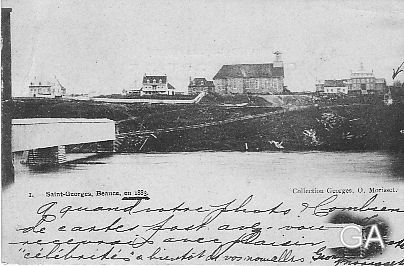 1. - Saint-Georges, Beauce, en 1883. Collection Georges, O. Morisset.
A quand votre photo & Combien
de cartes post. avez-vous
avec plaisir Geor
"célébrité" à bientôt de vos nouvelles
GA